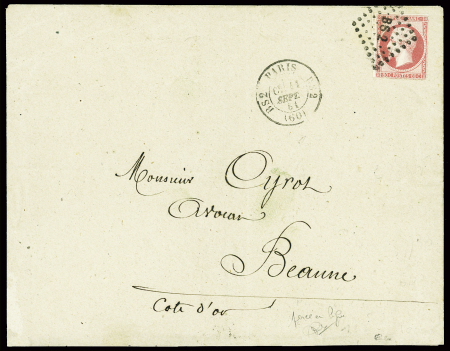 BS2
PARIS
BS2
SEPT.
61
(60)
Monsieur Cyrot
Avocat
Beaune
Cote d'or